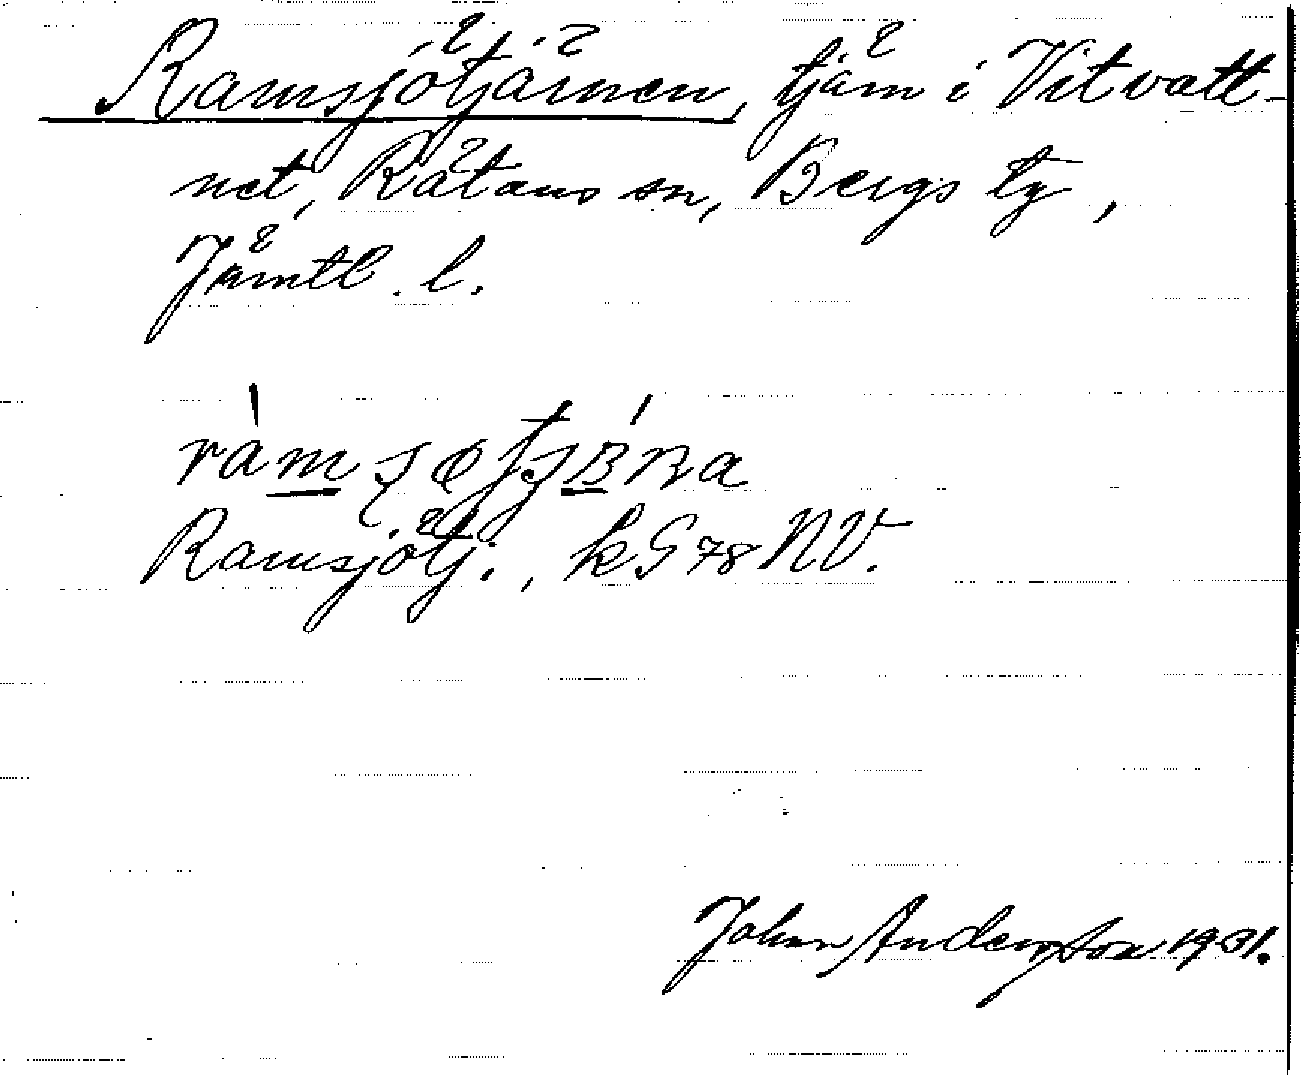 Ramsjötjärnen, tjärn i Vitvatt-
net, Rätans sn, Bergs tg,
Jämtl. l.
Ramsjötj., kG78NV.
John Andersson 1931.